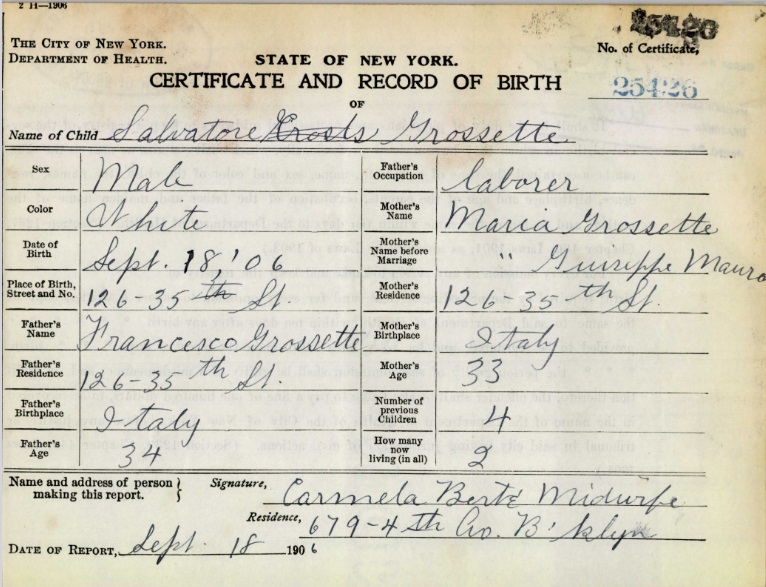 2 H—1906
THE CITY OF NEW YORK.
DEPARTMENT OF HEALTH.
STATE OF NEW YORK.
CERTIFICATE AND RECORD OF BIRTH
OF
No. of Certificate,
25426
Name of Child Salvatore Grossette
Sex Male
Father's Occupation laborer
Color White
Mother's Name Maria Grossette
Date of Birth Sept. 18, '06
Mother's Name before Marriage " Giuseppe Mauro
Place of Birth, Street and No. 126-35th St.
Mother's Residence 126-35th St.
Father's Name Francesco Grossette
Mother's Birthplace Italy
Father's Residence 126-35th St.
Mother's Age 33
Father's Birthplace Italy
Number of previous Children 4
Father's Age 34
How many now living (in all) 2
Name and address of person making this report.
Signature, Carmela Berte Midwife
Residence, 679-4th Av. B'klyn
DATE OF REPORT, Sept. 18 1906